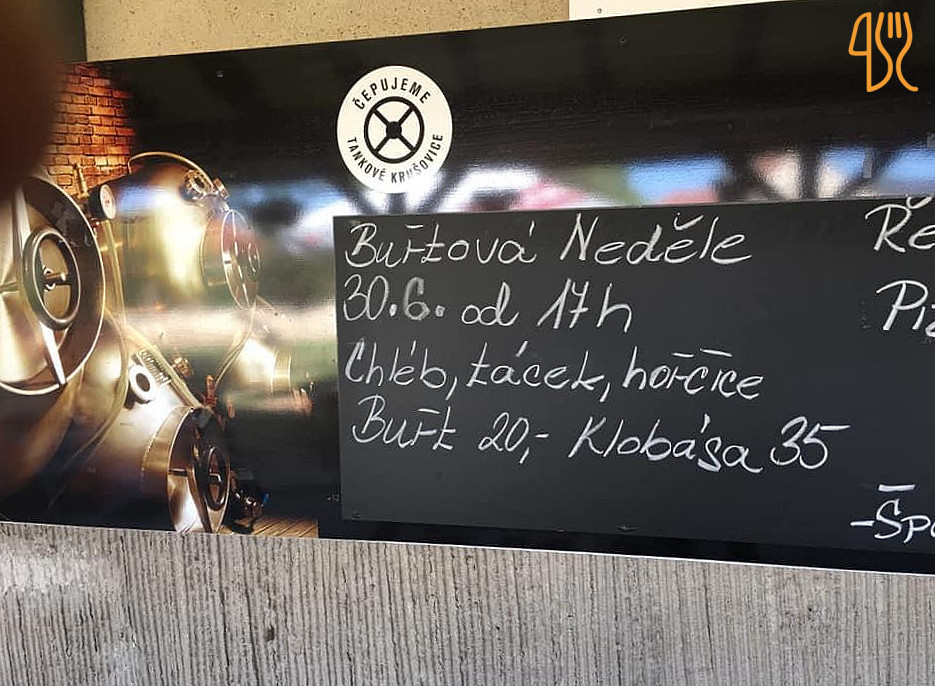 ČEPUJEME
TANKOVÉ KRUŠOVICE
Buřtová Neděle
30.6. od 17h
Chléb, tácek, hořčice
Buřt 20,- Klobása 35
Ře
Piz
-Špe